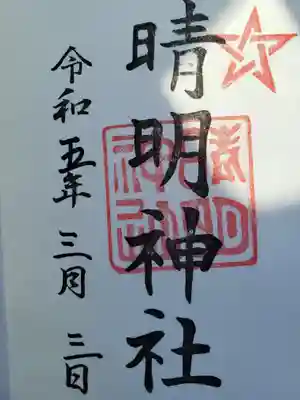 晴明神社
令和五年三月三日